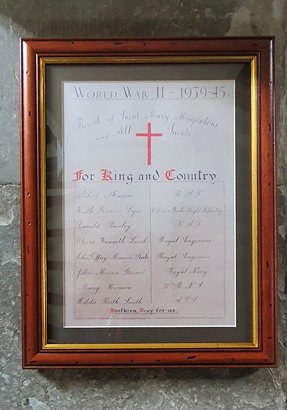 World War II - 1939-45
Parish of Saint Mary Magdalene
and All Saints
For King and Country.
Albert Hanson R A F
Keith Francis Dyer Light Infantry
Donald R A F
Oliver Kenneth Leech Royal Engineers
John Maurice Royal Engineers
John Morris Royal Navy
Mary Hanson W R N S
Hilda Ruth Smith A T S
Brethren, Pray for us.